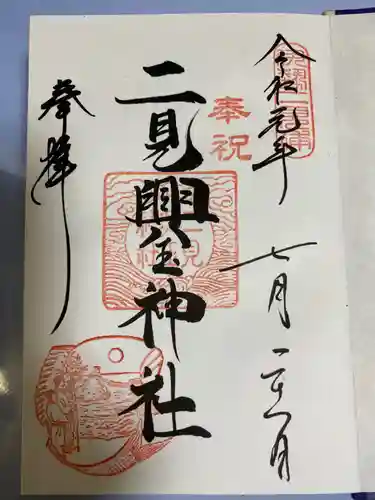 令和元年
七月二十一日
奉祝
二見興玉神社
奉拝